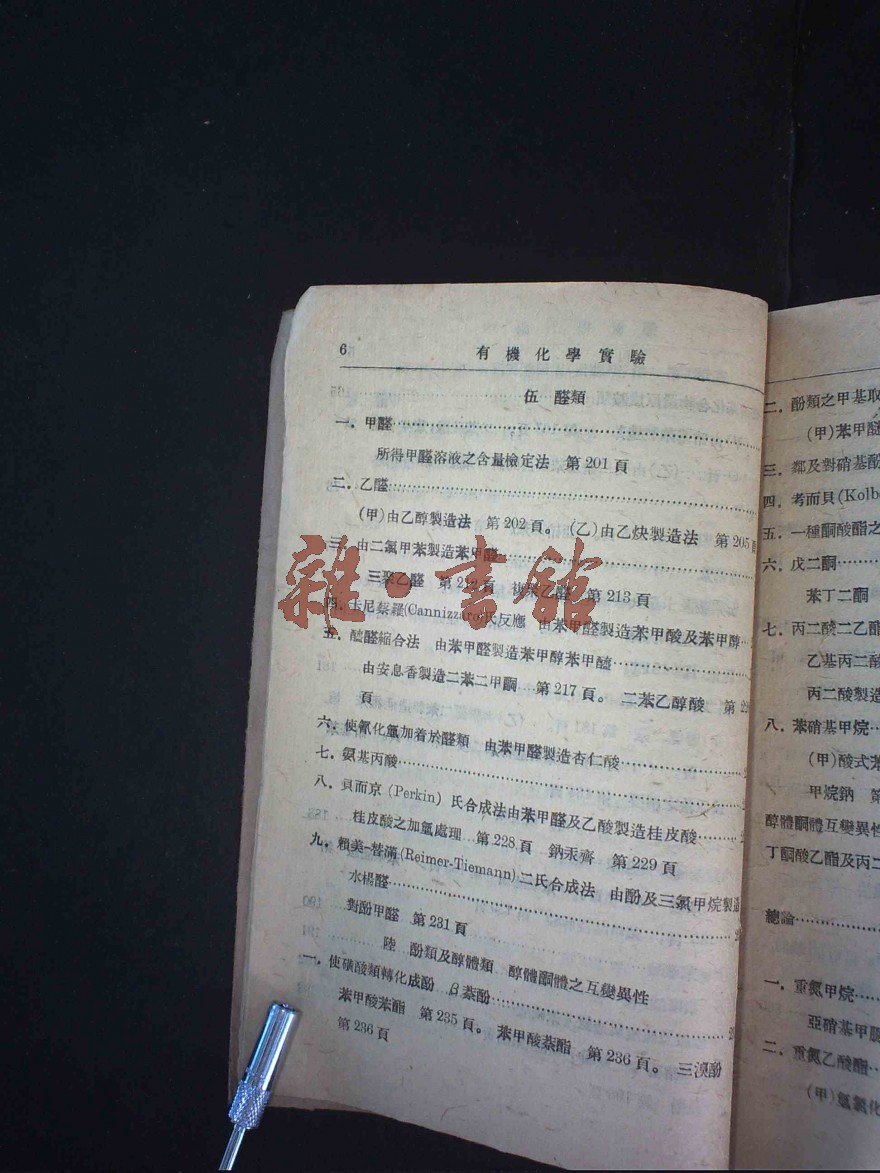 6 有機化學實驗
伍 醛類
一．甲醛
所得甲醛溶液之含量檢定法 第201頁
二．乙醛
(甲)由乙醇製造法 第202頁。 (乙)由乙炔製造法 第205
三．由二氯甲苯製造苯甲醛
三聚乙醛 第212頁 複聚乙醛 第213頁
四．卡尼蔡羅(Cannizzaro)氏反應 由苯甲醛製造苯甲酸及苯甲醇
五．醯醛縮合法 由苯甲醛製造苯甲醇苯甲醯
由安息香製造二苯二甲酮 第217頁。 二苯乙醇酸 第
頁
六．使氰化氫加着於醛類 由苯甲醛製造杏仁酸
七．氨基丙酸
八．貝而京 (Perkin) 氏合成法由苯甲醛及乙酸製造桂皮酸
桂皮酸之加氫處理 第228頁 鈉汞齊 第229頁
九．賴美-替滿(Reimer-Tiemann)二氏合成法 由酚及三氯甲烷製造
水楊醛
對酚甲醛 第231頁
陸 酚類及醇體類 醇體酮體之互變異性
一．使磺酸類轉化成酚 β萘酚
苯甲酸苯酯 第235頁。 苯甲酸萘酯 第236頁。 三溴酚
第236頁
二．酚類之甲基取
(甲)苯甲醚
三．鄰及對硝基酚
四．考而貝(Kolb
五．一種酮酸酯之
六．戊二酮
苯丁二酮
七．丙二酸二乙酯
乙基丙二酸
丙二酸製造
八．苯硝基甲烷
(甲)酸式苯
甲烷鈉 第
醇體酮體互變異性
丁酮酸乙酯及丙二
總論
一．重氮甲烷
亞硝基甲
二．重氮乙酸酯
(甲)氫氯化
雜·書館